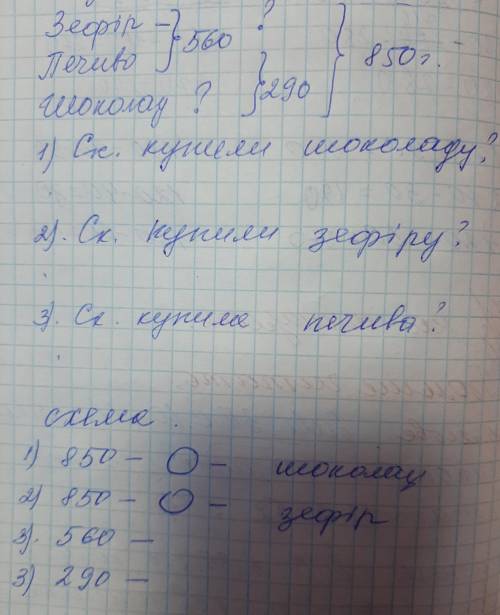 Зефір – } 560 ?
Печиво } 850г.
Шоколад ? } 290
1) Ск. купили шоколаду?
2). Ск. купили зефіру?
3). Ск. купила печива?
схема.
1) 850 – О – шоколад
2) 850 – О – зефір
3). 560 –
3) 290 –